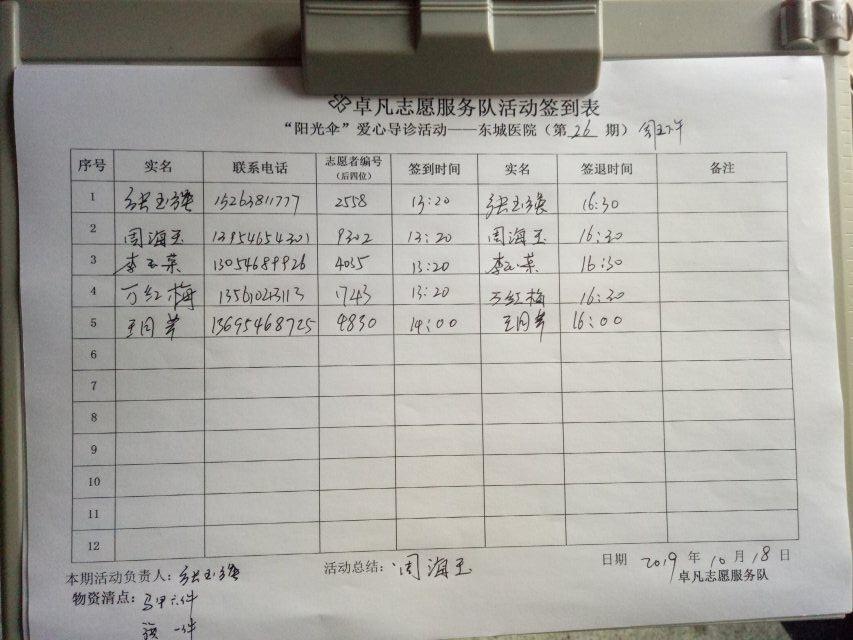 卓凡志愿服务队活动签到表
“阳光伞”爱心导诊活动——东城医院（第 26 期）周五下午
序号 实名 联系电话 志愿者编号（后四位） 签到时间 实名 签退时间 备注
1 张玉强 15263811777 2558 13:20 张玉强 16:30
2 周海玉 13954654301 9302 13:20 周海玉 16:30
3 李玉荣 13054689926 4035 13:20 李玉荣 16:30
4 万红梅 13561023113 1743 13:20 万红梅 16:30
5 王同 13695468725 4830 14:00 王同 16:00
6
7
8
9
10
11
12
本期活动负责人：张玉强 活动总结：周海玉 日期 2019 年 10 月 18 日
物资清点：马甲六件 卓凡志愿服务队
一件